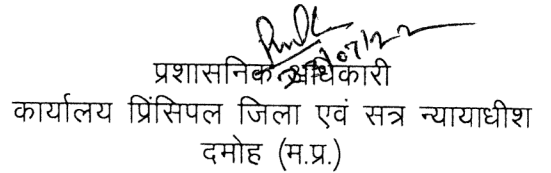 प्रशासनिक अधिकारी
कार्यालय प्रिंसिपल जिला एवं सत्र न्यायाधीश
दमोह (म.प्र.)